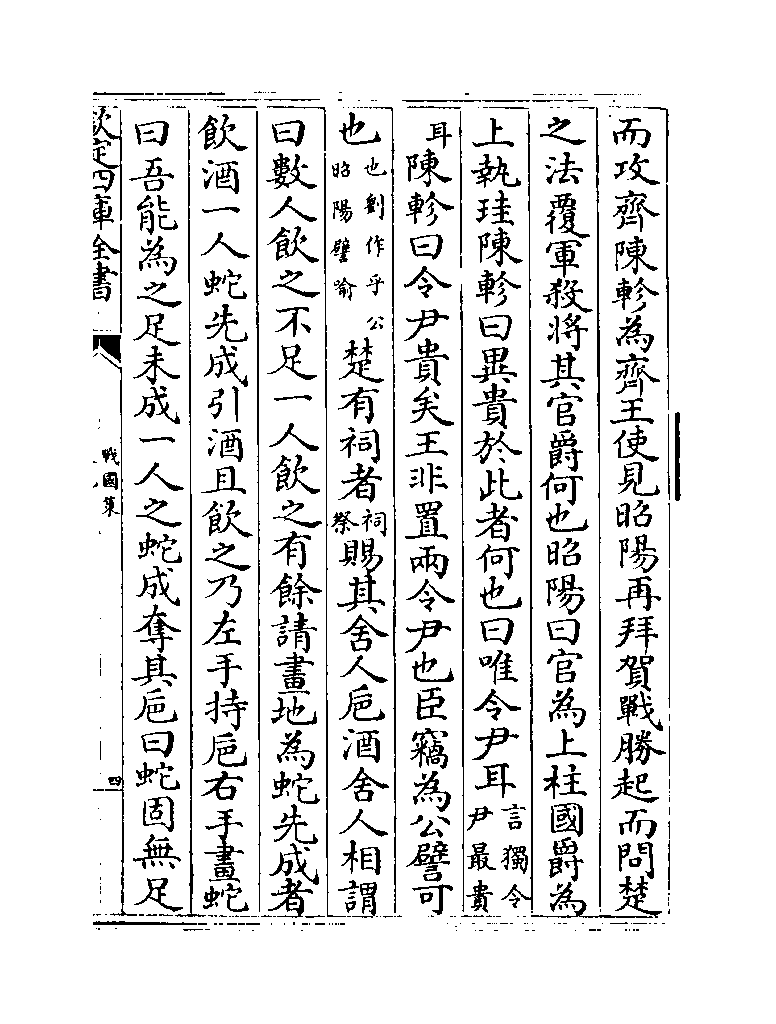 而攻齊陳軫為齊王使見昭陽再拜賀戰勝起而問楚
之法覆軍殺將其官爵何也昭陽曰官為上柱國爵為
上執珪陳軫曰異貴於此者何也曰唯令尹耳言獨令尹最貴
耳陳軫曰令尹貴矣王非置兩令尹也臣竊為公譬可
也也劉作乎公昭陽譬喻楚有祠者祠祭賜其舍人巵酒舍人相謂
曰數人飲之不足一人飲之有餘請畫地為蛇先成者
飲酒一人蛇先成引酒且飲之乃左手持巵右手畫蛇
曰吾能為之足未成一人之蛇成奪其巵曰蛇固無足
欽定四庫全書
戰國策
四